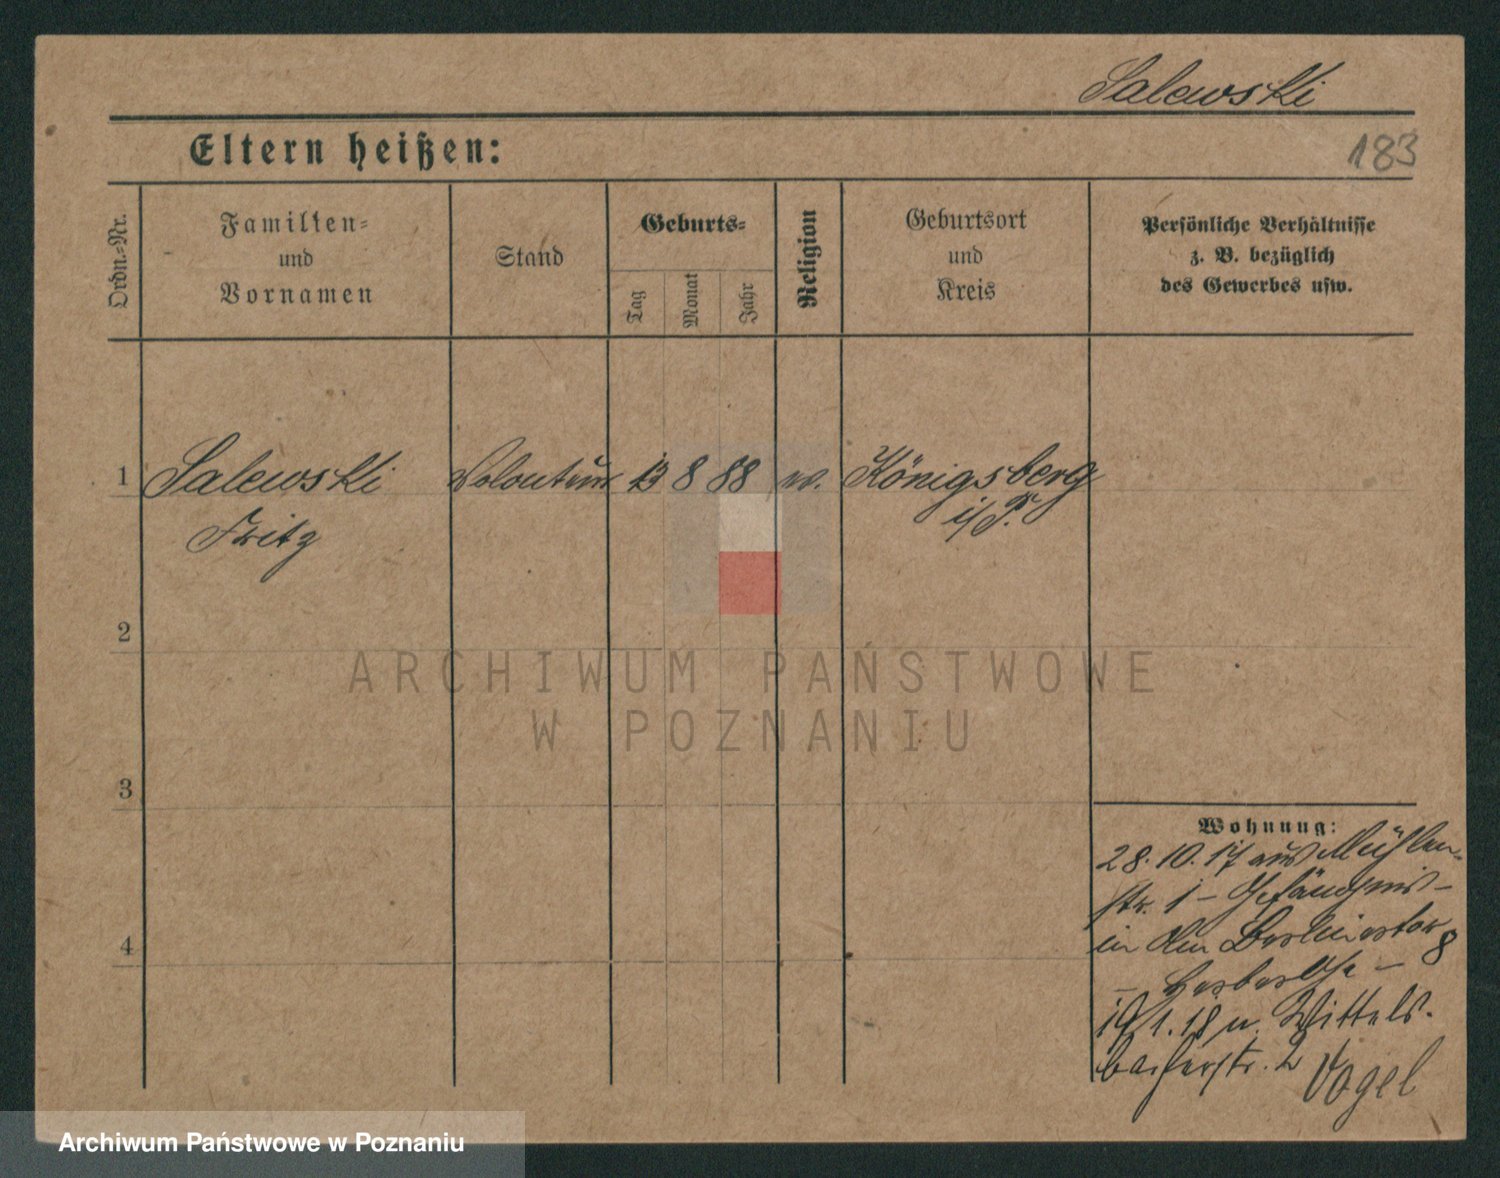 Salewski
183
Eltern heißen:
Ordn.-Nr.
Familien-
und
Vornamen
Stand
Geburts-
Tag
Monat
Jahr
Religion
Geburtsort
und
Kreis
Persönliche Verhältnisse
z. B. bezüglich
des Gewerbes usw.
1 Salewski 13 8 88 Königsberg
Fritz i/P.
2
3
4
Wohnung:
28.10.17 aus Mühlen-
str. 1 – Gefängnis –
in den Berlinertor 8
19/1.18 n. Wittels-
bacherstr. 2 Vogel
ARCHIWUM PAŃSTWOWE
W POZNANIU
Archiwum Państwowe w Poznaniu